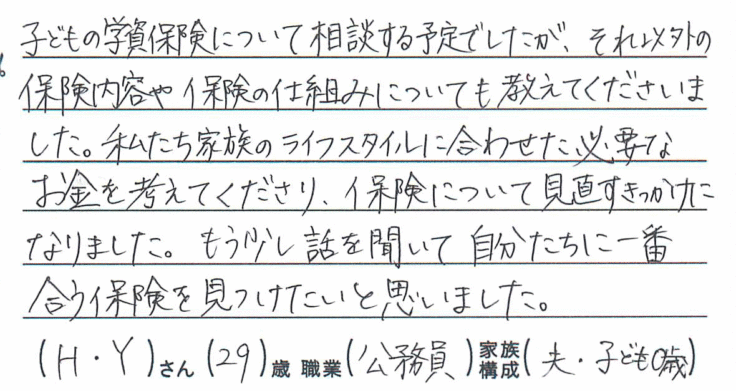 子どもの学資保険について相談する予定でしたが、それ以外の
保険内容や保険の仕組みについても教えてくださいま
した。私たち家族のライフスタイルに合わせた必要な
お金を考えてくださり、保険について見直すきっかけに
なりました。もう少し話を聞いて自分たちに一番
合う保険を見つけたいと思いました。
(H・Y)さん(29)歳 職業(公務員)家族構成(夫・子ども0歳)